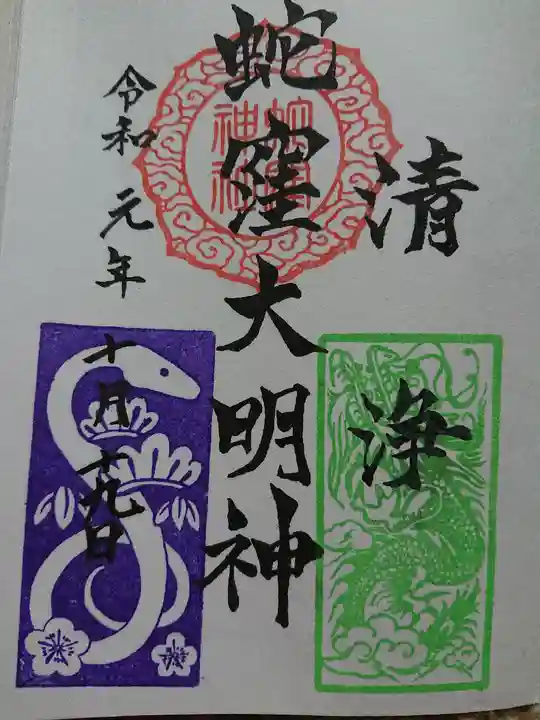 清浄
蛇窪大明神
蛇窪
神社
令和元年
十月十九日